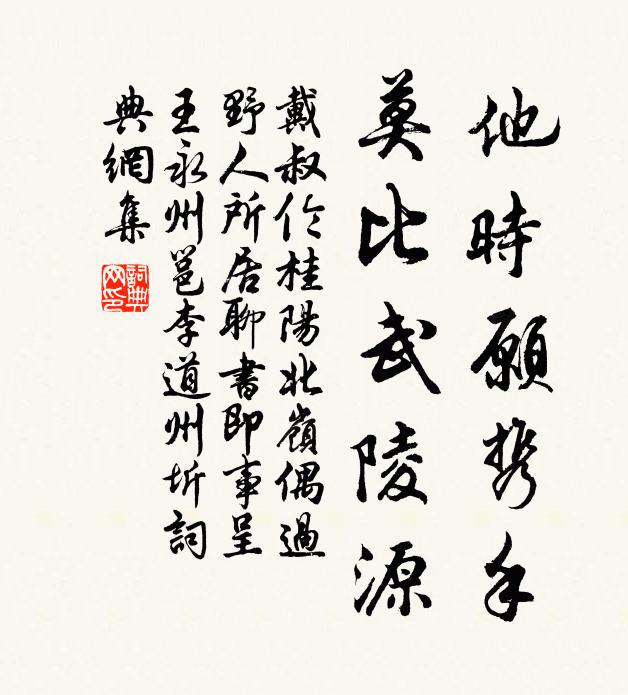 他時願携手
莫比武陵源
戴叔伦桂陽北嶺偶過
野人所居聊書即事呈
王永州邕李道州圻詞
典網集
詞典网印